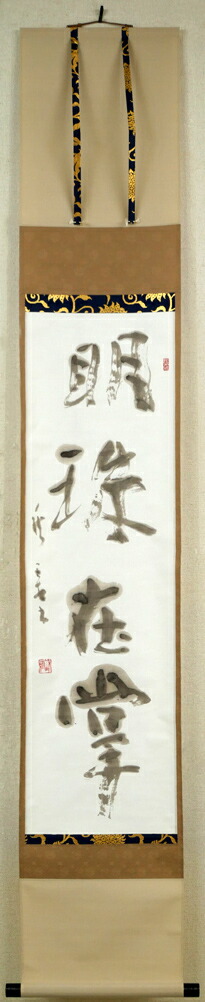 明珠在掌